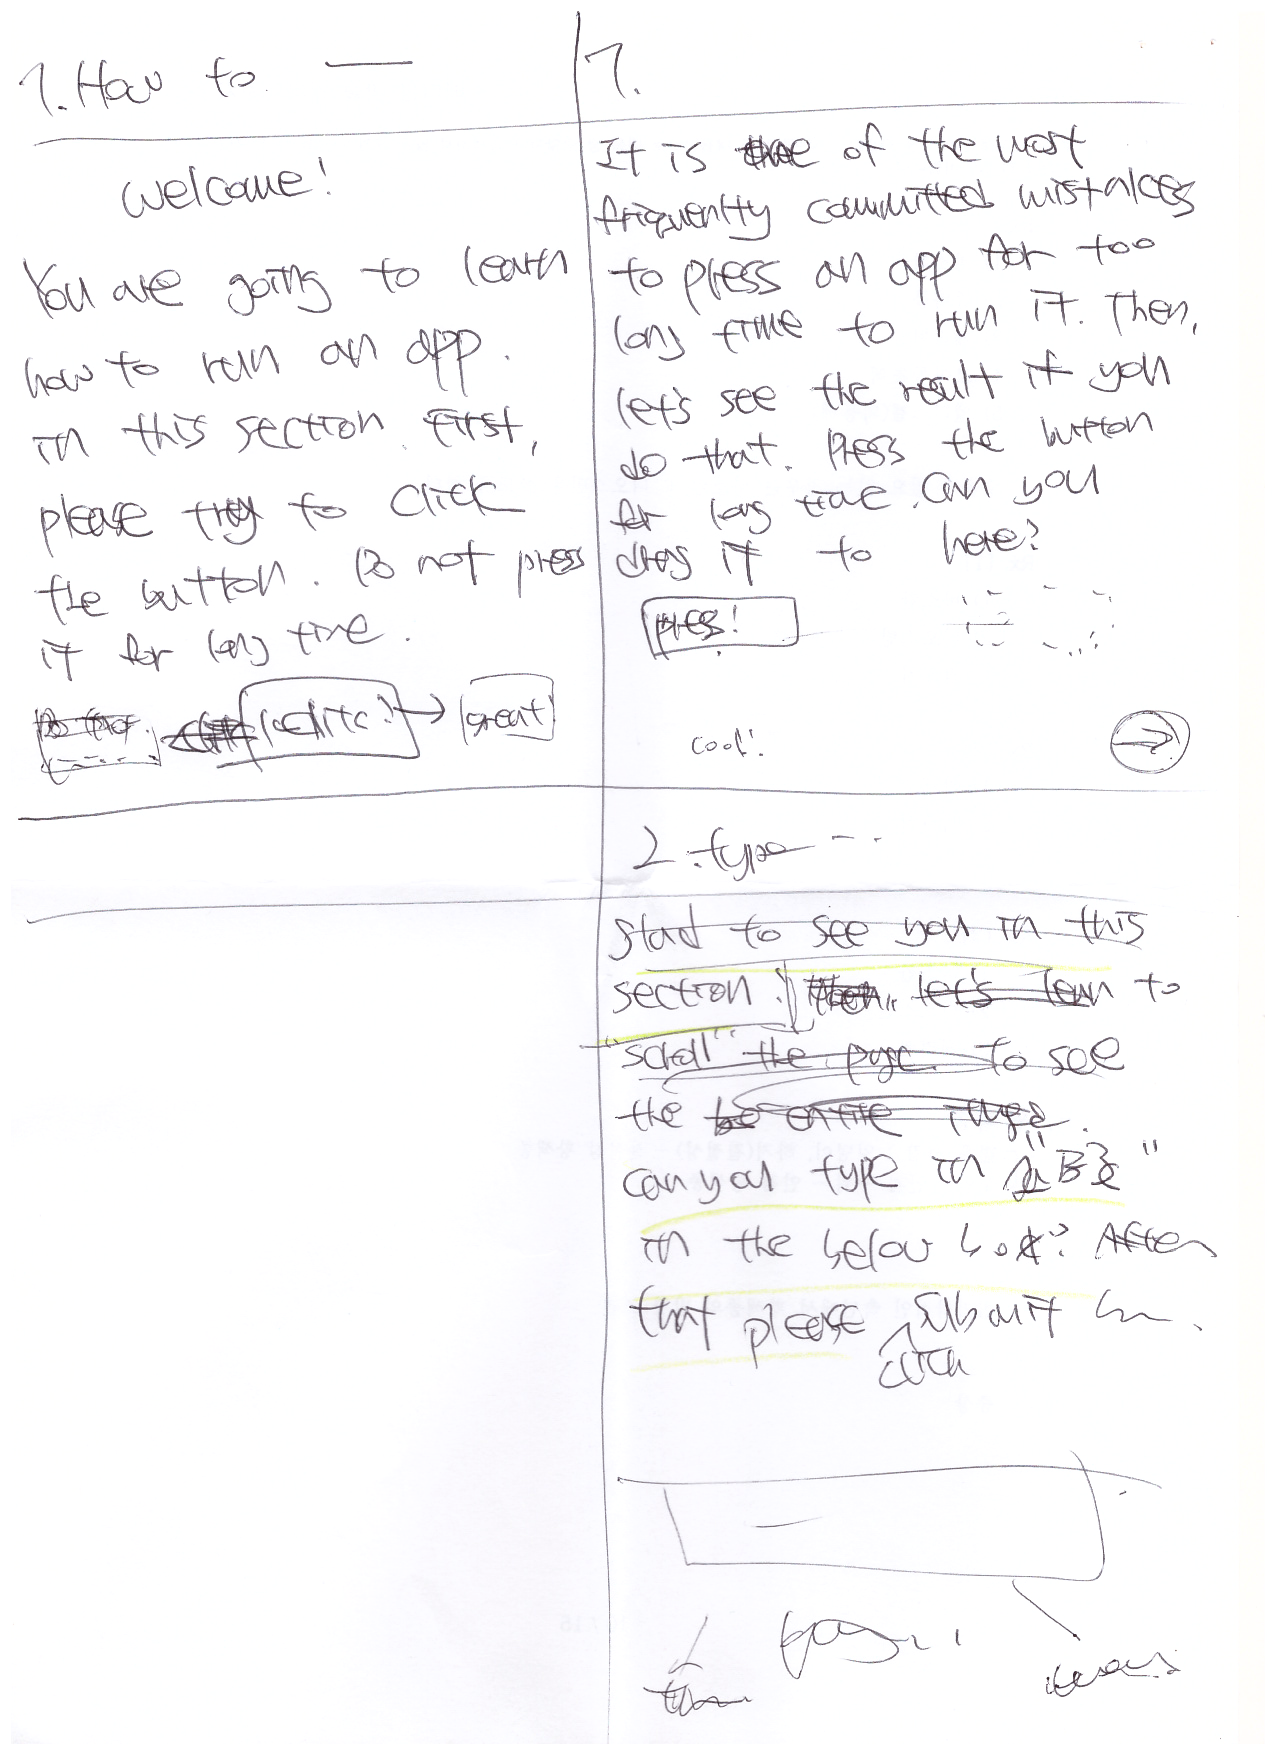 1. How to —
Welcome!
You are going to learn
how to run an app.
in this section. First,
please try to click
the button. Do not press
it for long time.
great
1.
It is one of the most
frequently committed mistakes
to press an app for too
long time to run it. Then,
let's see the result if you
do that. Press the button
for long time. Can you
drag it to here?
press!
cool!
2. type ...
Glad to see you in this
section. Then, let's learn to
"scroll" the page. To see
the entire
can you type in
in the below box? After
that please submit
click